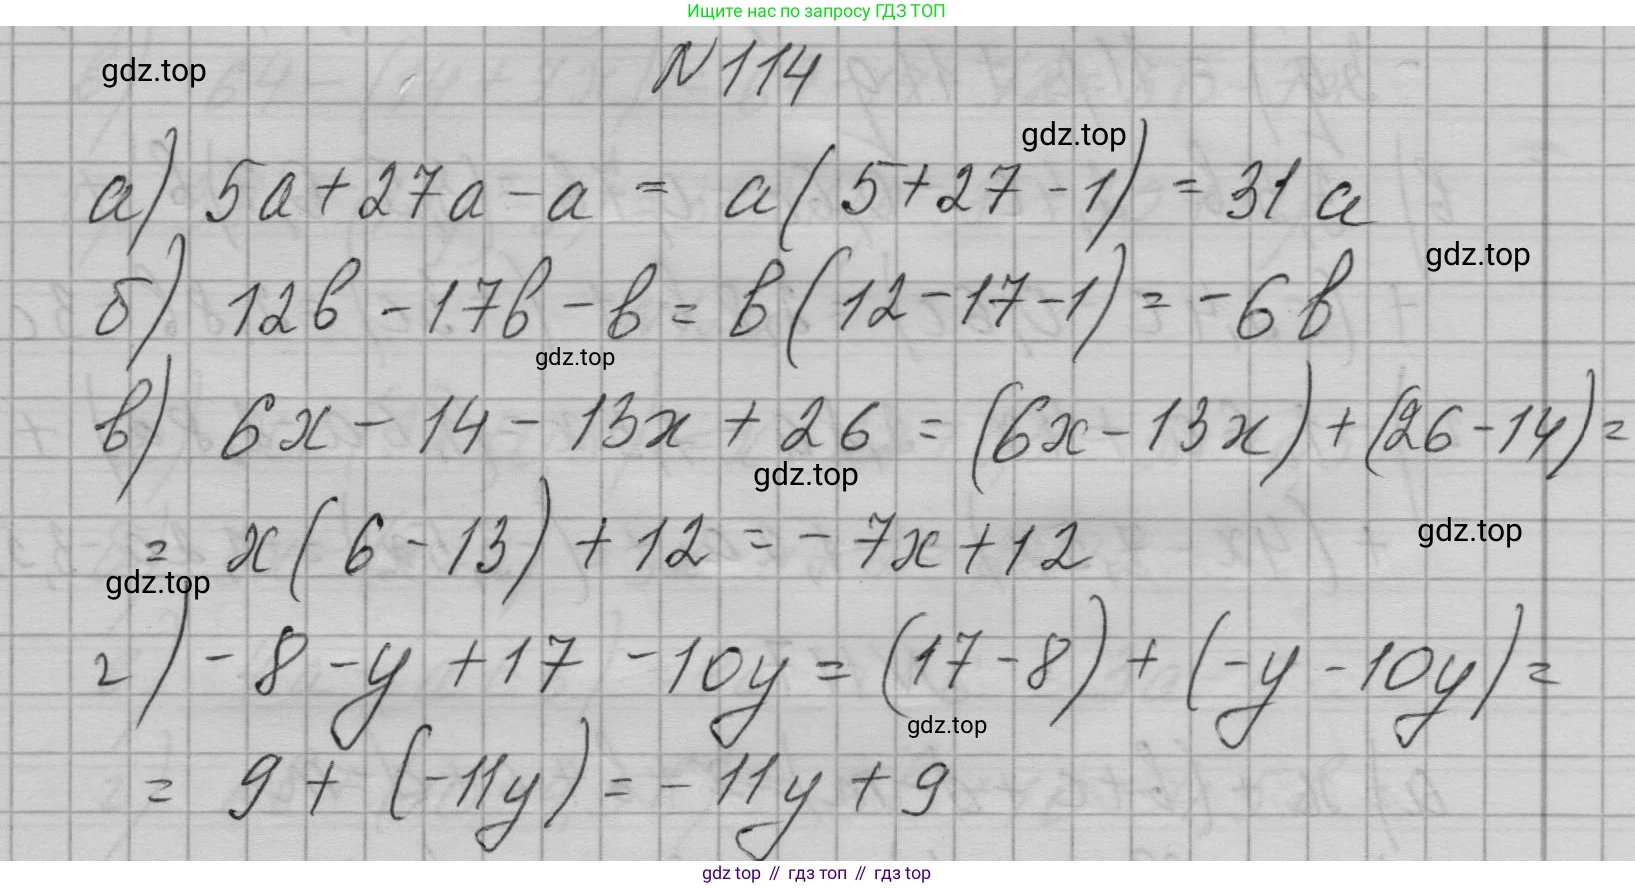 Ищите нас по запросу ГДЗ ТОП
gdz.top
N 114
gdz.top
а) 5а + 27а - а = а(5+27-1) = 31а
gdz.top
б) 12в - 17в - в = в(12-17-1) = -6в
gdz.top
в) 6х - 14 - 13х + 26 = (6х - 13х) + (26 - 14) =
gdz.top
= х(6-13) + 12 = -7х + 12
gdz.top
gdz.top
г) -8 - у + 17 - 10у = (17-8) + (-у - 10у) =
gdz.top
= 9 + (-11у) = -11у + 9
gdz top // гдз топ // гдз top